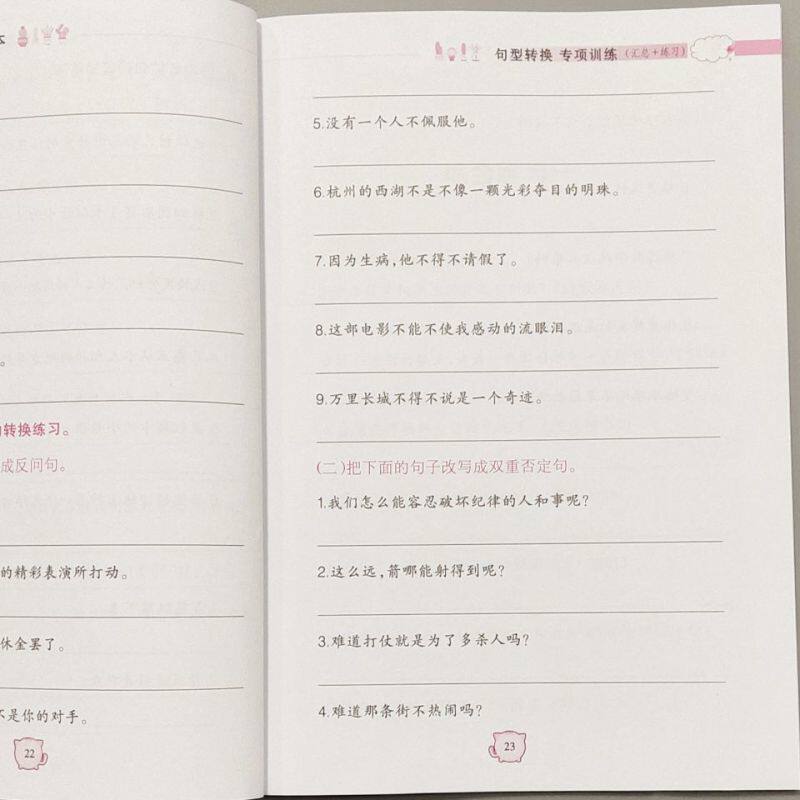 本
。
句转换练习。
成反问句。
的精彩表演所打动。
休金罢了。
不是你的对手。
22
句型转换 专项训练(汇总+练习)
5.没有一个人不佩服他。
6.杭州的西湖不是不像一颗光彩夺目的明珠。
7.因为生病,他不得不请假了。
8.这部电影不能不使我感动的流眼泪。
9.万里长城不得不说是一个奇迹。
(二)把下面的句子改写成双重否定句。
1.我们怎么能容忍破坏纪律的人和事呢?
2.这么远,箭哪能射得到呢?
3.难道打仗就是为了多杀人吗?
4.难道那条街不热闹吗?
23